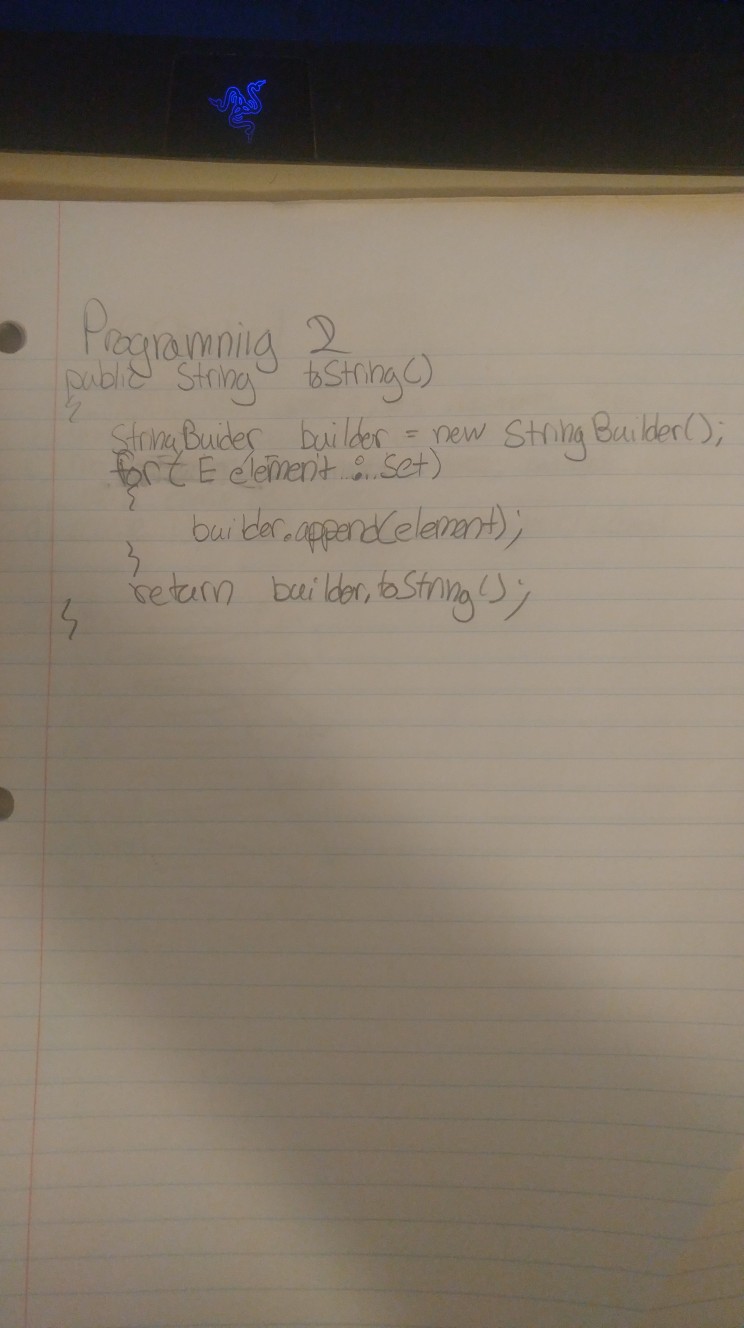 Programniig 2
public String toString()
{
StringBuider builder = new StringBuilder();
for (E element : set)
{
builder.append(element);
}
return builder.toString();
}